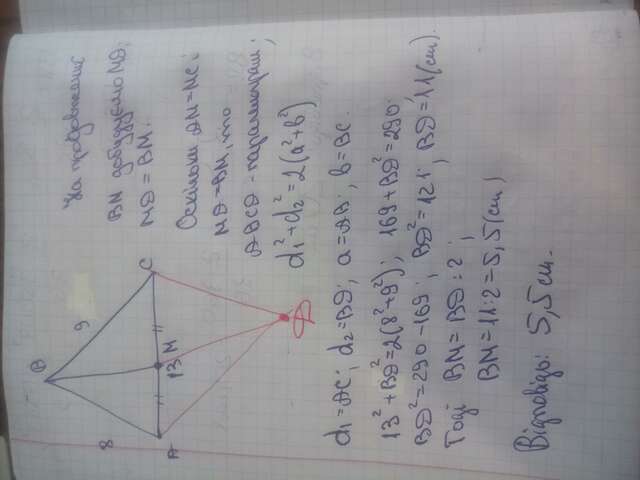 На продовженні
BM добудуємо MD,
MD = BM.
Оскільки AM = MC і
MD = BM, то
ABCD - паралелограм;
d₁² + d₂² = 2(a² + b²)
B
8
9
A
13
M
C
D
d₁ = AC; d₂ = BD; a = AB; b = BC.
13² + BD² = 2(8² + 9²); 169 + BD² = 290;
BD² = 290 - 169; BD² = 121; BD = 11 (см).
Тоді BM = BD : 2;
BM = 11:2 = 5,5 (см)
Відповідь: 5,5 см.